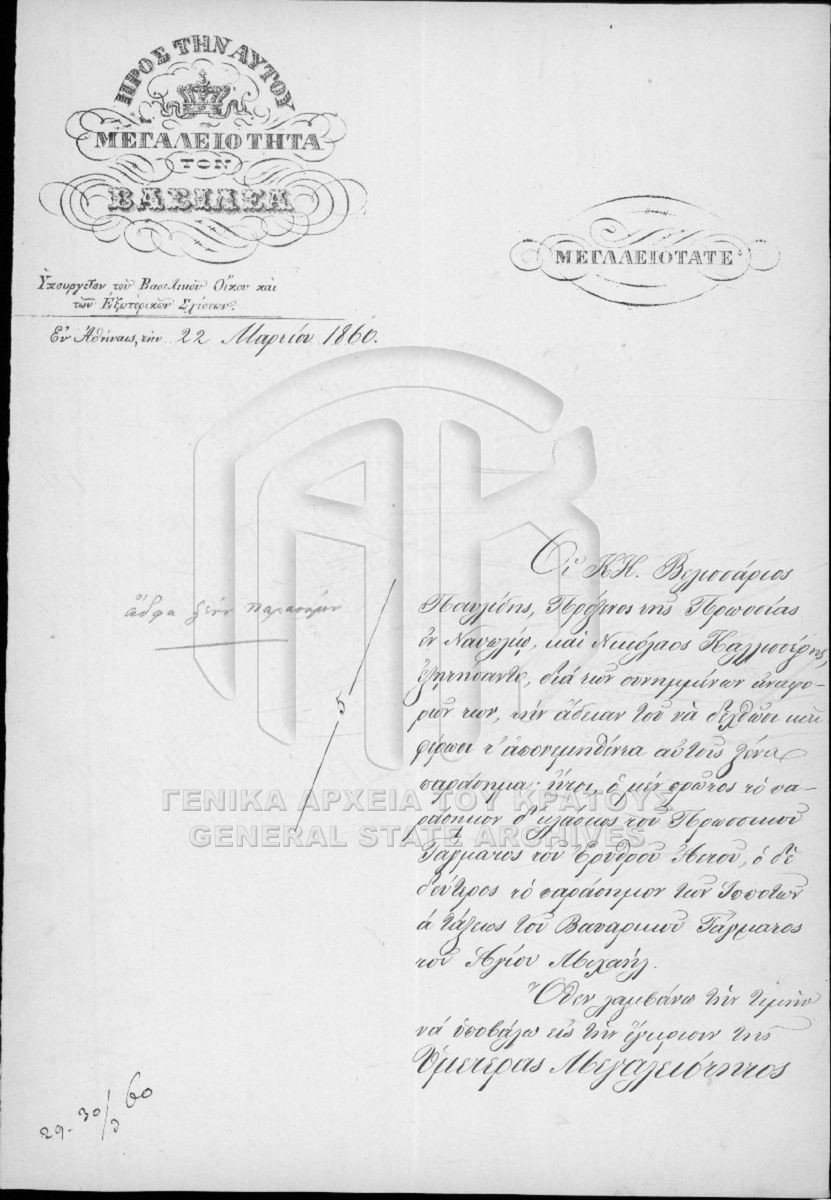 ΠΡΟΣ ΤΗΝ ΑΥΤΟΥ
ΜΕΓΑΛΕΙΟΤΗΤΑ
ΤΟΝ
ΒΑΣΙΛΕΑ
Ὑπουργεῖον τοῦ Βασιλικοῦ Οἴκου καὶ
τῶν Ἐξωτερικῶν Σχέσεων.
Ἐν Ἀθήναις, τὴν 22 Μαρτίου 1860.
ΜΕΓΑΛΕΙΟΤΑΤΕ
Οἱ ΚΚ. Βελισσάριος
Παυλίδης, Πρόξενος τῆς Πρωσσίας
ἐν Ναυπλίῳ, καὶ Νικόλαος
ἐζητήσαντο, διὰ τῶν συνημμένων ἀναφο-
ρῶν των, τὴν ἄδειαν τοῦ νὰ δεχθῶσι καὶ
φέρωσι τ' ἀπονεμηθέντα αὐτοῖς ξένα
παράσημα· ἤτοι, ὁ μὲν πρῶτος τὸ πα-
ράσημον δ' κλάσεως τοῦ Πρωσσικοῦ
Τάγματος τοῦ Ἐρυθροῦ Ἀετοῦ, ὁ δὲ
δεύτερος τὸ παράσημον τῶν Ἱπποτῶν
ά τάξεως τοῦ Βαυαρικοῦ Τάγματος
τοῦ Ἁγίου Μιχαήλ.
Ὅθεν λαμβάνω τὴν τιμὴν
νὰ ὑποβάλω εἰς τὴν ἔγκρισιν τῆς
Ὑμετέρας Μεγαλειότητος
ἄδεια ξένων παρασήμων
5
29-30/3 60
ΓΕΝΙΚΑ ΑΡΧΕΙΑ ΤΟΥ ΚΡΑΤΟΥΣ
GENERAL STATE ARCHIVES